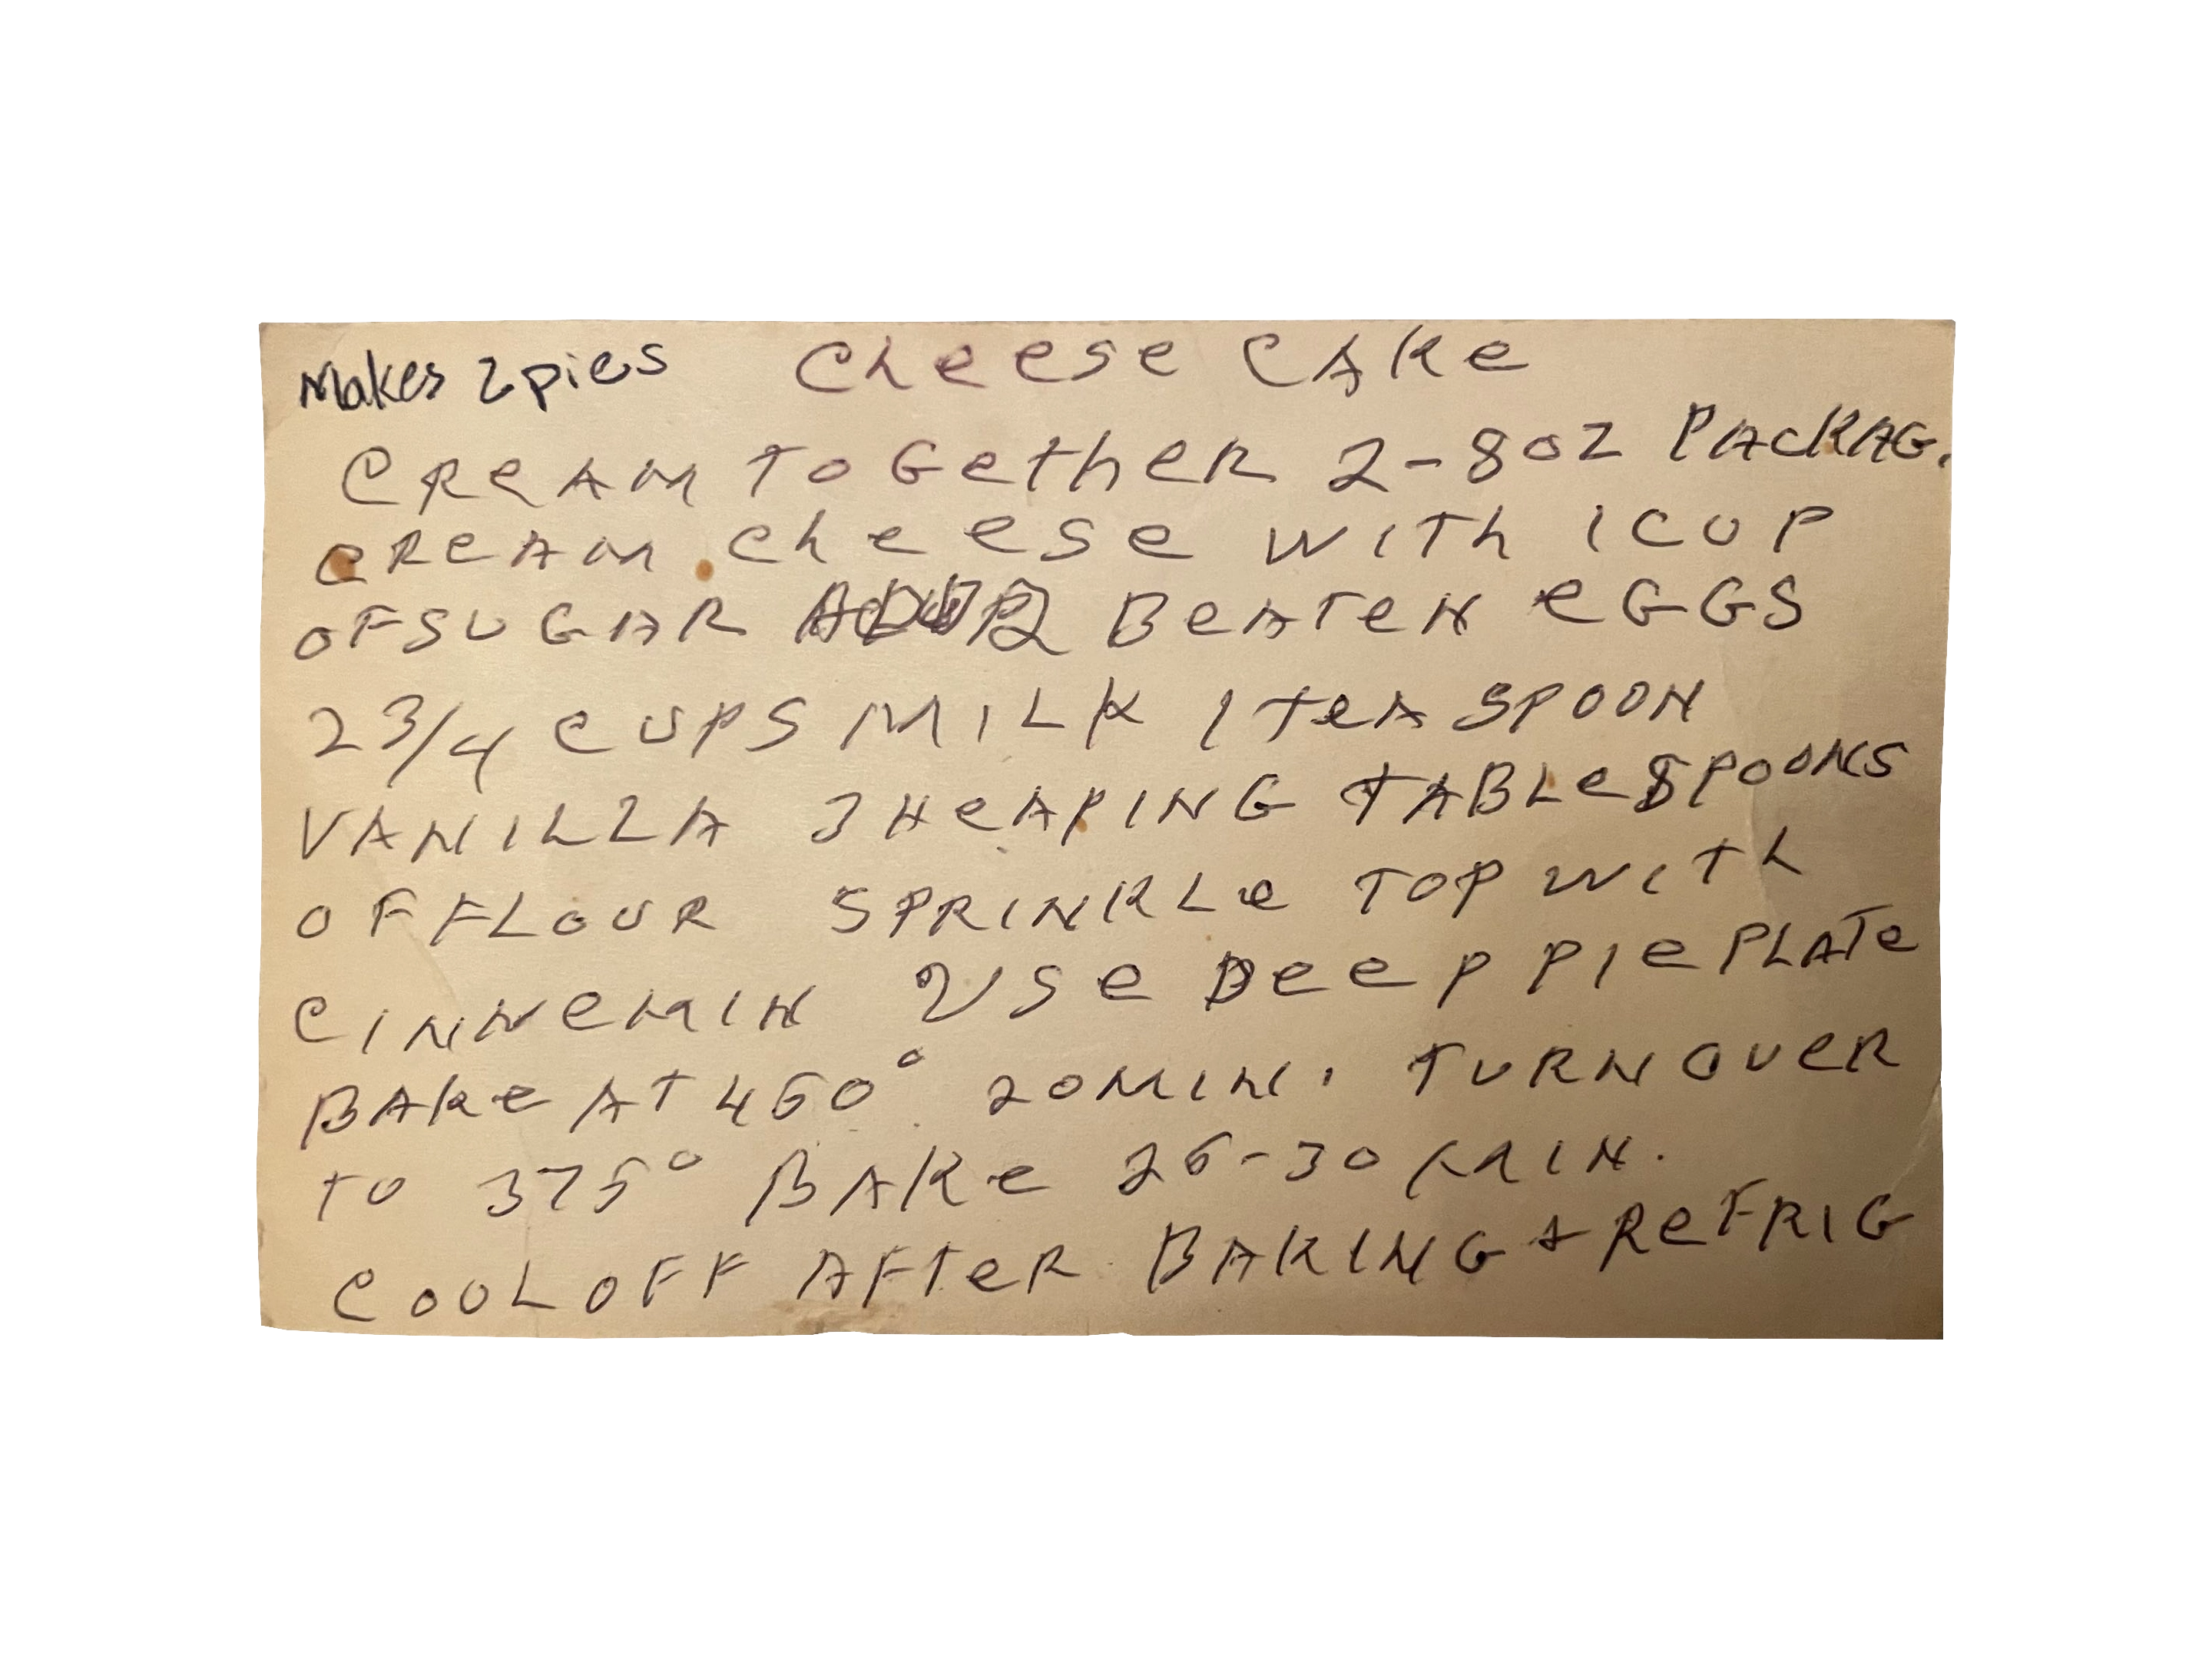 Makes 2 pies Cheese Cake
Cream Together 2-8oz Packag.
Cream Cheese with 1 cup
of Sugar Add 2 Beaten eggs
2 3/4 cups Milk 1 teaspoon
Vanilla 3 Heaping Tablespoons
of Flour Sprinkle Top with
Cinnemin Use Deep Pie Plate
Bake at 450° 20 Min. Turn Over
to 375° Bake 25-30 Min.
Cool off After Baking + Refrig